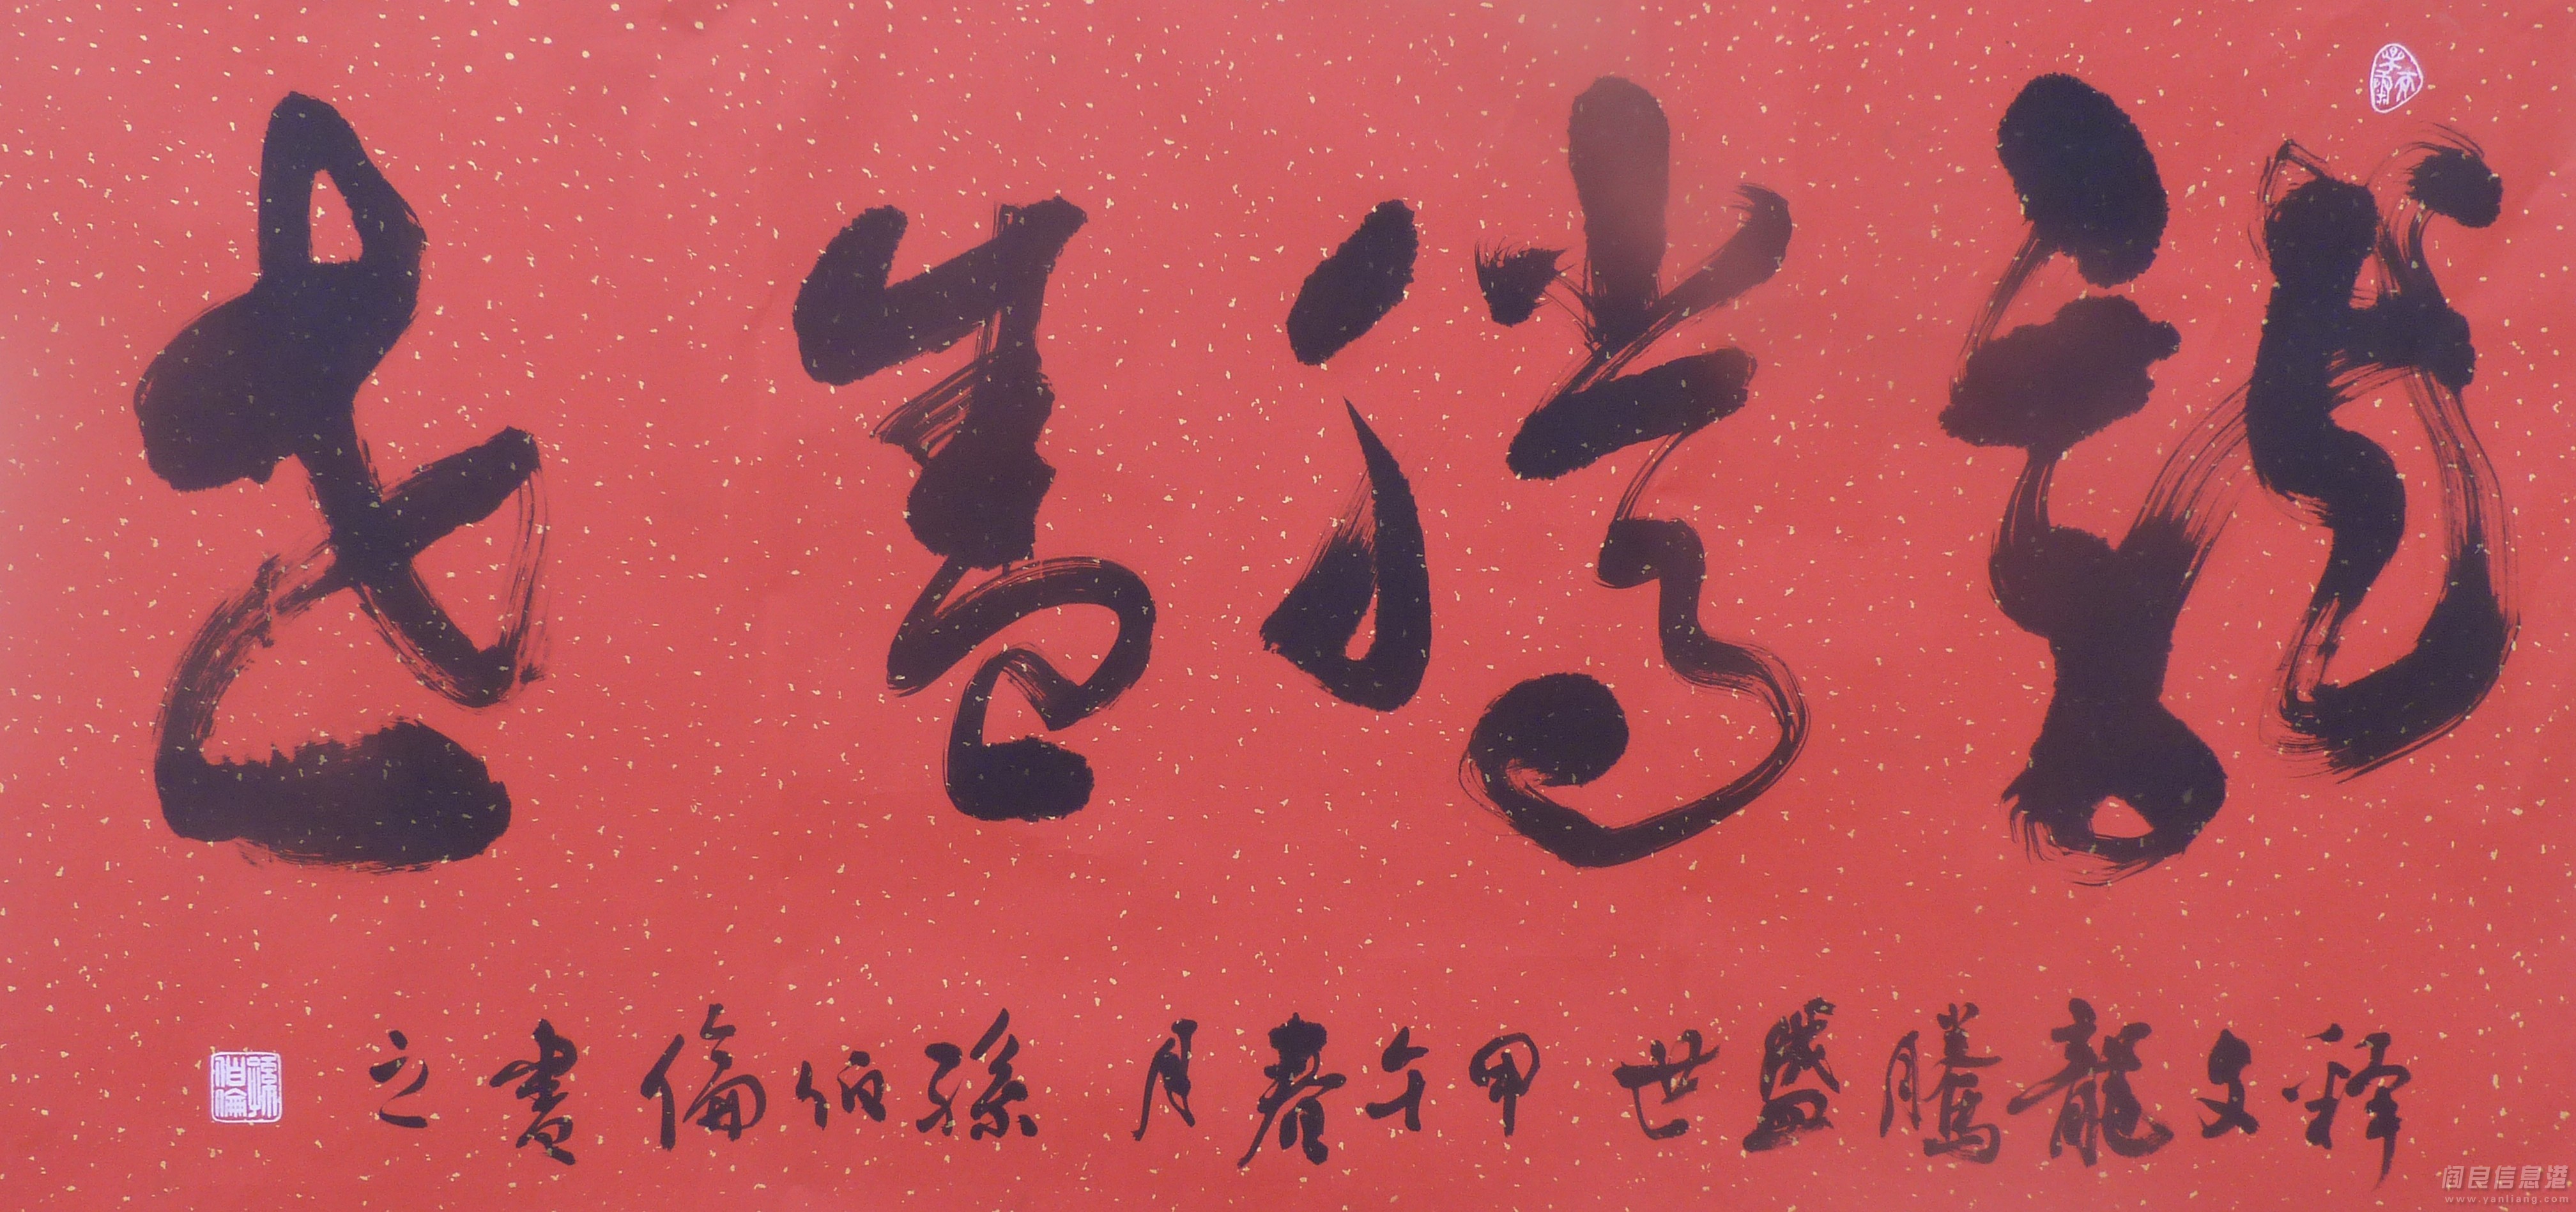 龍騰盛世
释文龍騰盛世 甲午春月 孫伯倫書之
孫伯倫
阎良信息港
www.yanliang.com